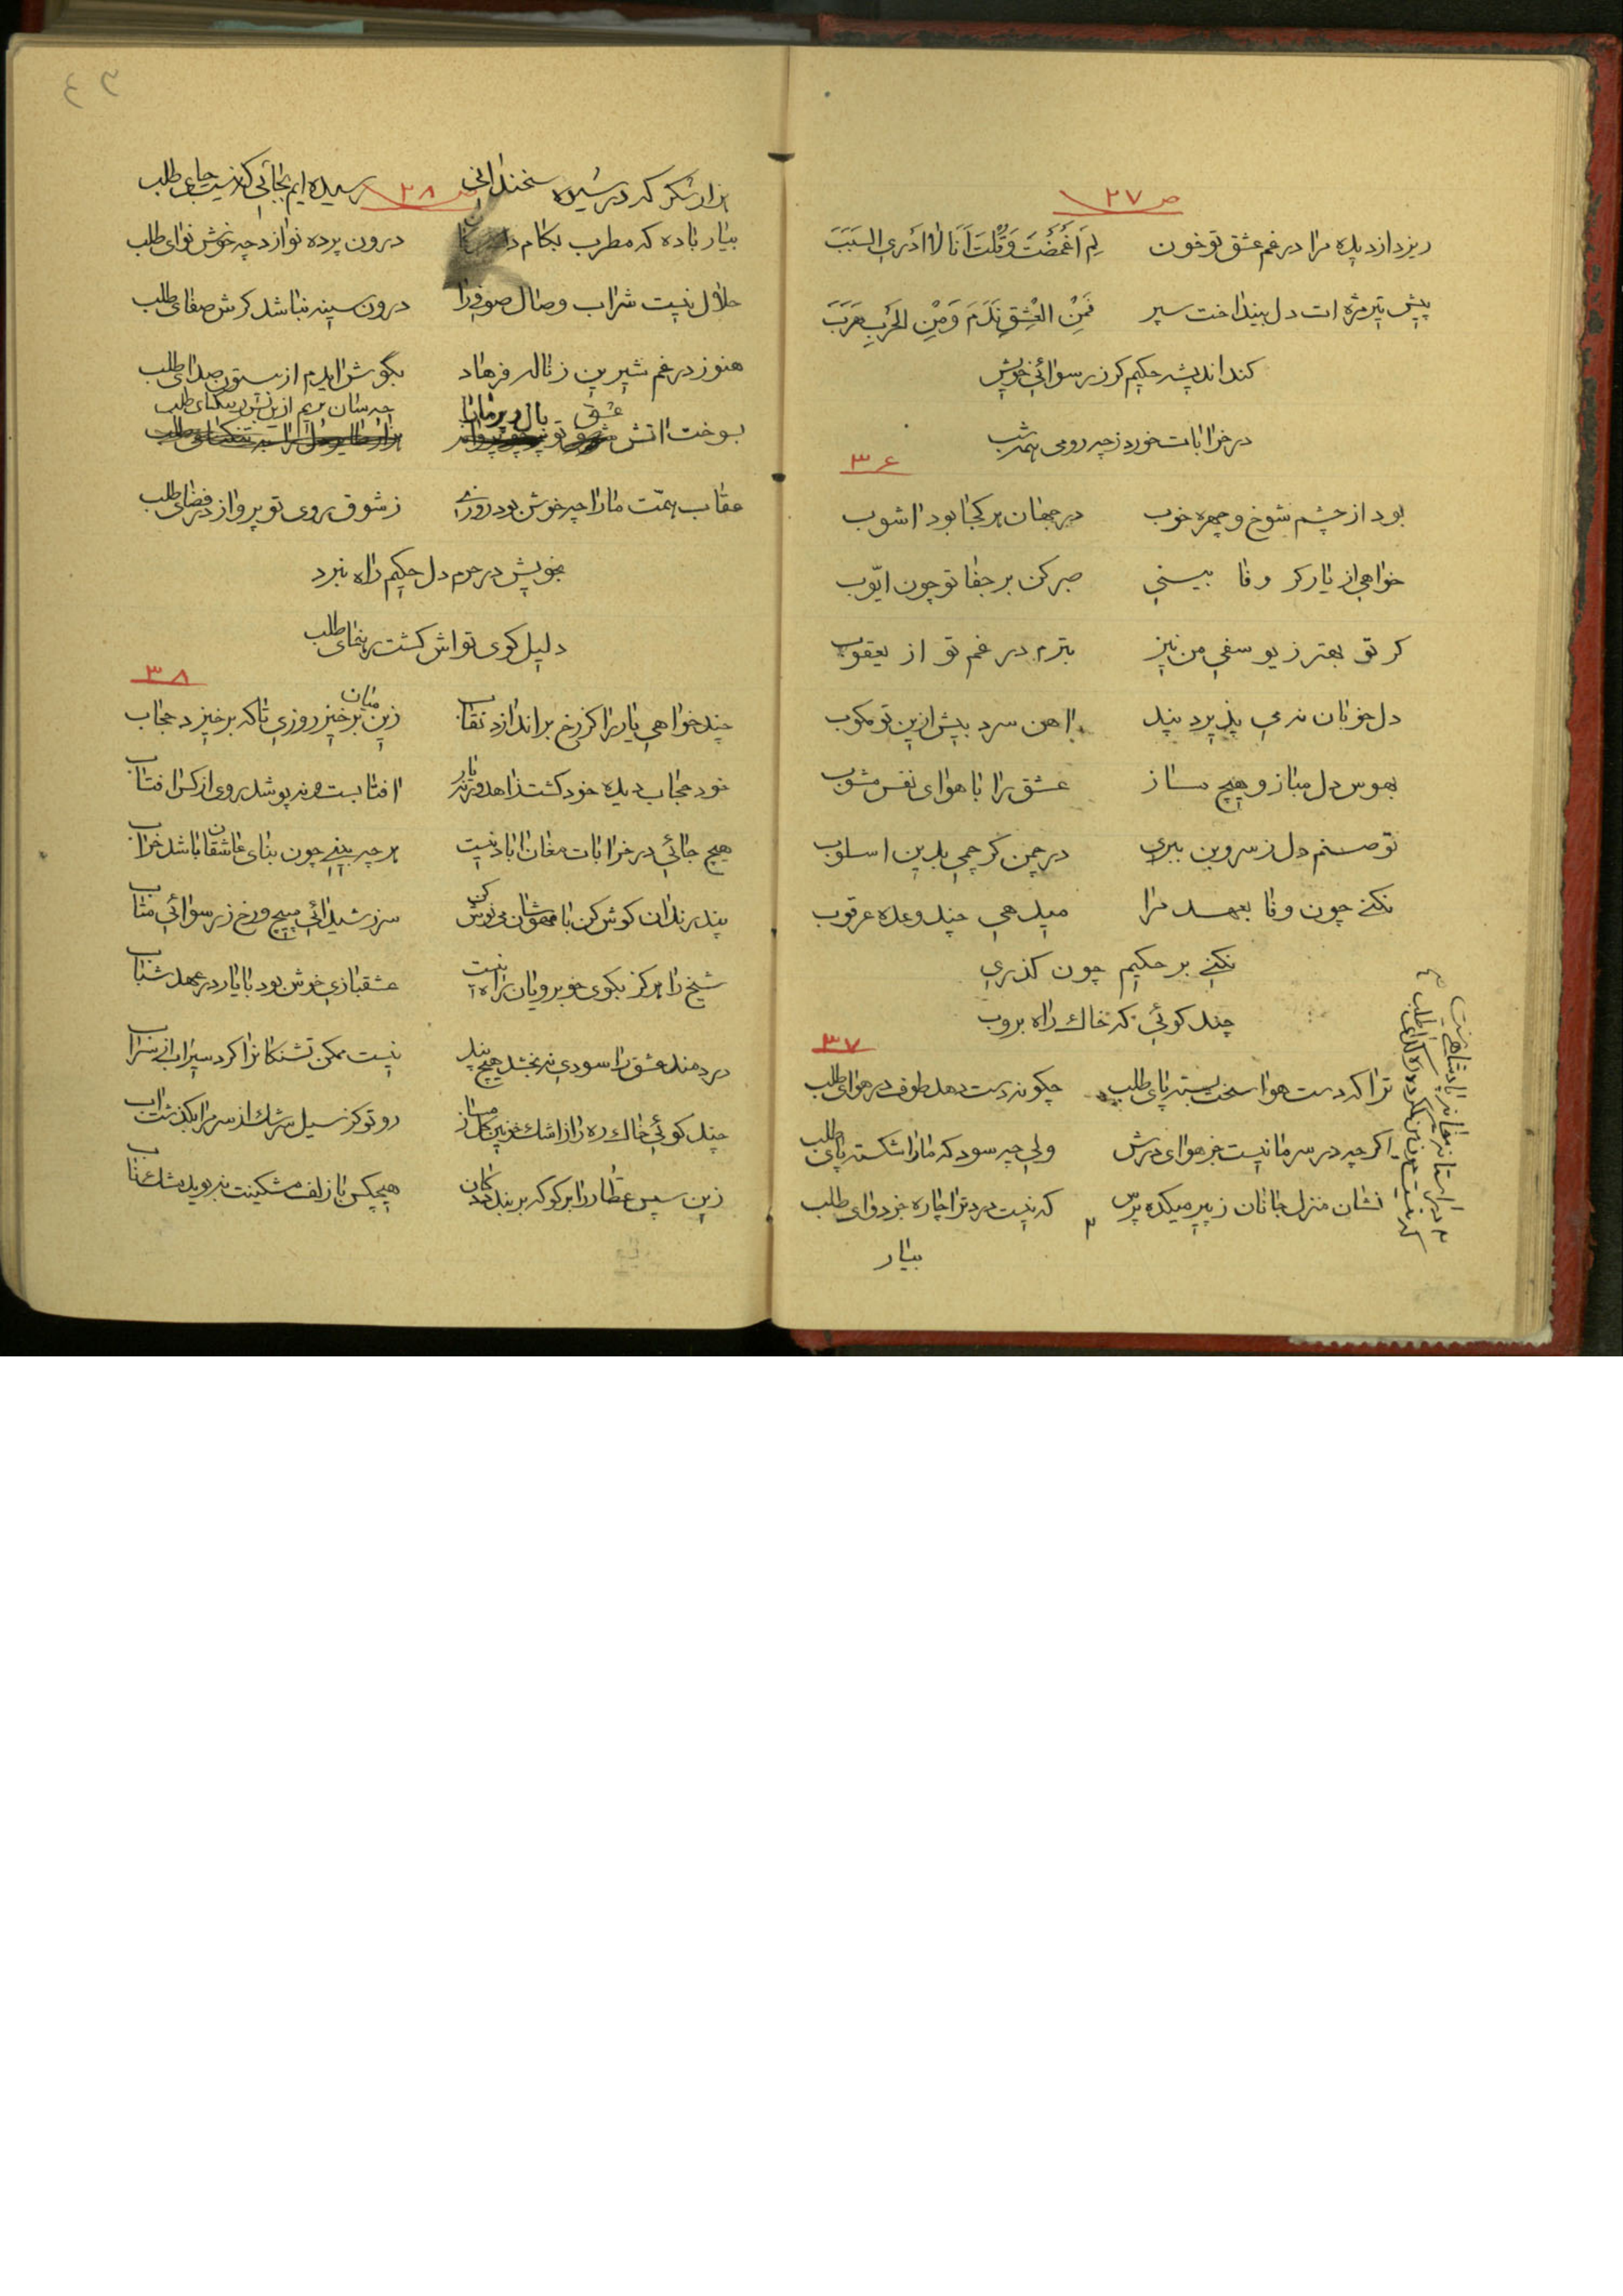 ص ٢٧
ریزد از دیده مرا در غم عشق تو خون لِمَ اَغْمَضْتَ وَقُلْتَ اَنَا لا اَدْرِی السَبَبَ
پیش تیر مژه ات دل بینداخت سپر فَمِنْ العِشْقِ نَدَمَ وَمِنْ الحَرَبِ هَرَبَ
کند اندیشه حکیم کر ز رسوائی خویش
در خرابات خورد ز چه رو می همه شب
٣٦
بود از چشم شوخ و چهره خوب در جهان هر کجا بود اشوب
خواهی از یار کر وفا بینی صبر کن بر جفا تو چون ایّوب
کر تو بهتر ز یوسفی من نیز بترم در غم تو از یعقوب
دل خوبان نه می پذیرد پند اهن سرد بیش ازین تو مکوب
بهوس دل مباز و هیچ مساز عشق را با هوای نفس مشوب
تو صنم دل ز سر و بن ببری در چمن کر چمی بدین اسلوب
نکنی چون وفا بعهد مرا میدهی چند وعده عرقوب
نکنی بر حکیم چون کذری
چند کوئی که خاك راه بروب
٣٧
ترا که دست هوا سخت بسته پای طلب چکونه دست دهد طوف در هوای طلب
اکر چه در سر ما نیست جز هوای درش ولی چه سود که ما را شکسته پای طلب
نشان منزل جانان ز پیر میکده پرس که نیست درد ترا چاره جز دوای طلب
بیار
در استانه میخانه پادشاهی نیست
٤٣
ص ٢٨
هزار شکر که در شیوه سخندانی رسیده ایم بجائی که نیست جای طلب
بیار باده که مطرب بکام درون پرده نوازد چه خوش نوای طلب
حلال نیست شراب وصال صوفی را درون سینه نباشد کرش صفای طلب
هنوز در غم شیرین ز ناله فرهاد بکوش ایدم از بیستون صدای طلب
بسوخت اتش عشق تو بال و پر ما را چه سان پریم ازین تنکنای طلب
عقاب همّت ما را چه خوش بود روزی ز شوق روی تو پرواز در فضای طلب
بخویش در حرم دل حکیم راه نبرد
دلیل کوی تو اش کشت رهنمای طلب
٣٨
چند خواهی یار را کز رخ براندازد نقاب زین میان برخیز روزی تا که برخیزد حجاب
خود حجاب دیده خود کشت زاهد ورنه یار افتابست و نپوشد روی از کس افتاب
هیچ جائی در خرابات مغان اباد نیست هر چه بینی چون بنای عاشقان باشد خراب
پند رندان کوش کن با مهوشان می نوش کن سر ز شیدائی مپیچ و رخ ز رسوائی متاب
شیخ را هرکز بکوی خوبرویان راه نیست عشقبازی خوش بود با یار در عهد شباب
دردمند عشق را سودی نه بخشد هیچ پند نیست ممکن تشنکانرا کرد سیراب از سراب
چند کوئی خاك ره را از اشك خونین کل مساز رو تو کز سیل سرشك از سر مرا بکذشت اب
زین سپس عطار را بر کو که بر بندد دکان هیچکس با زلف مشکینت نبوید مشك ناب